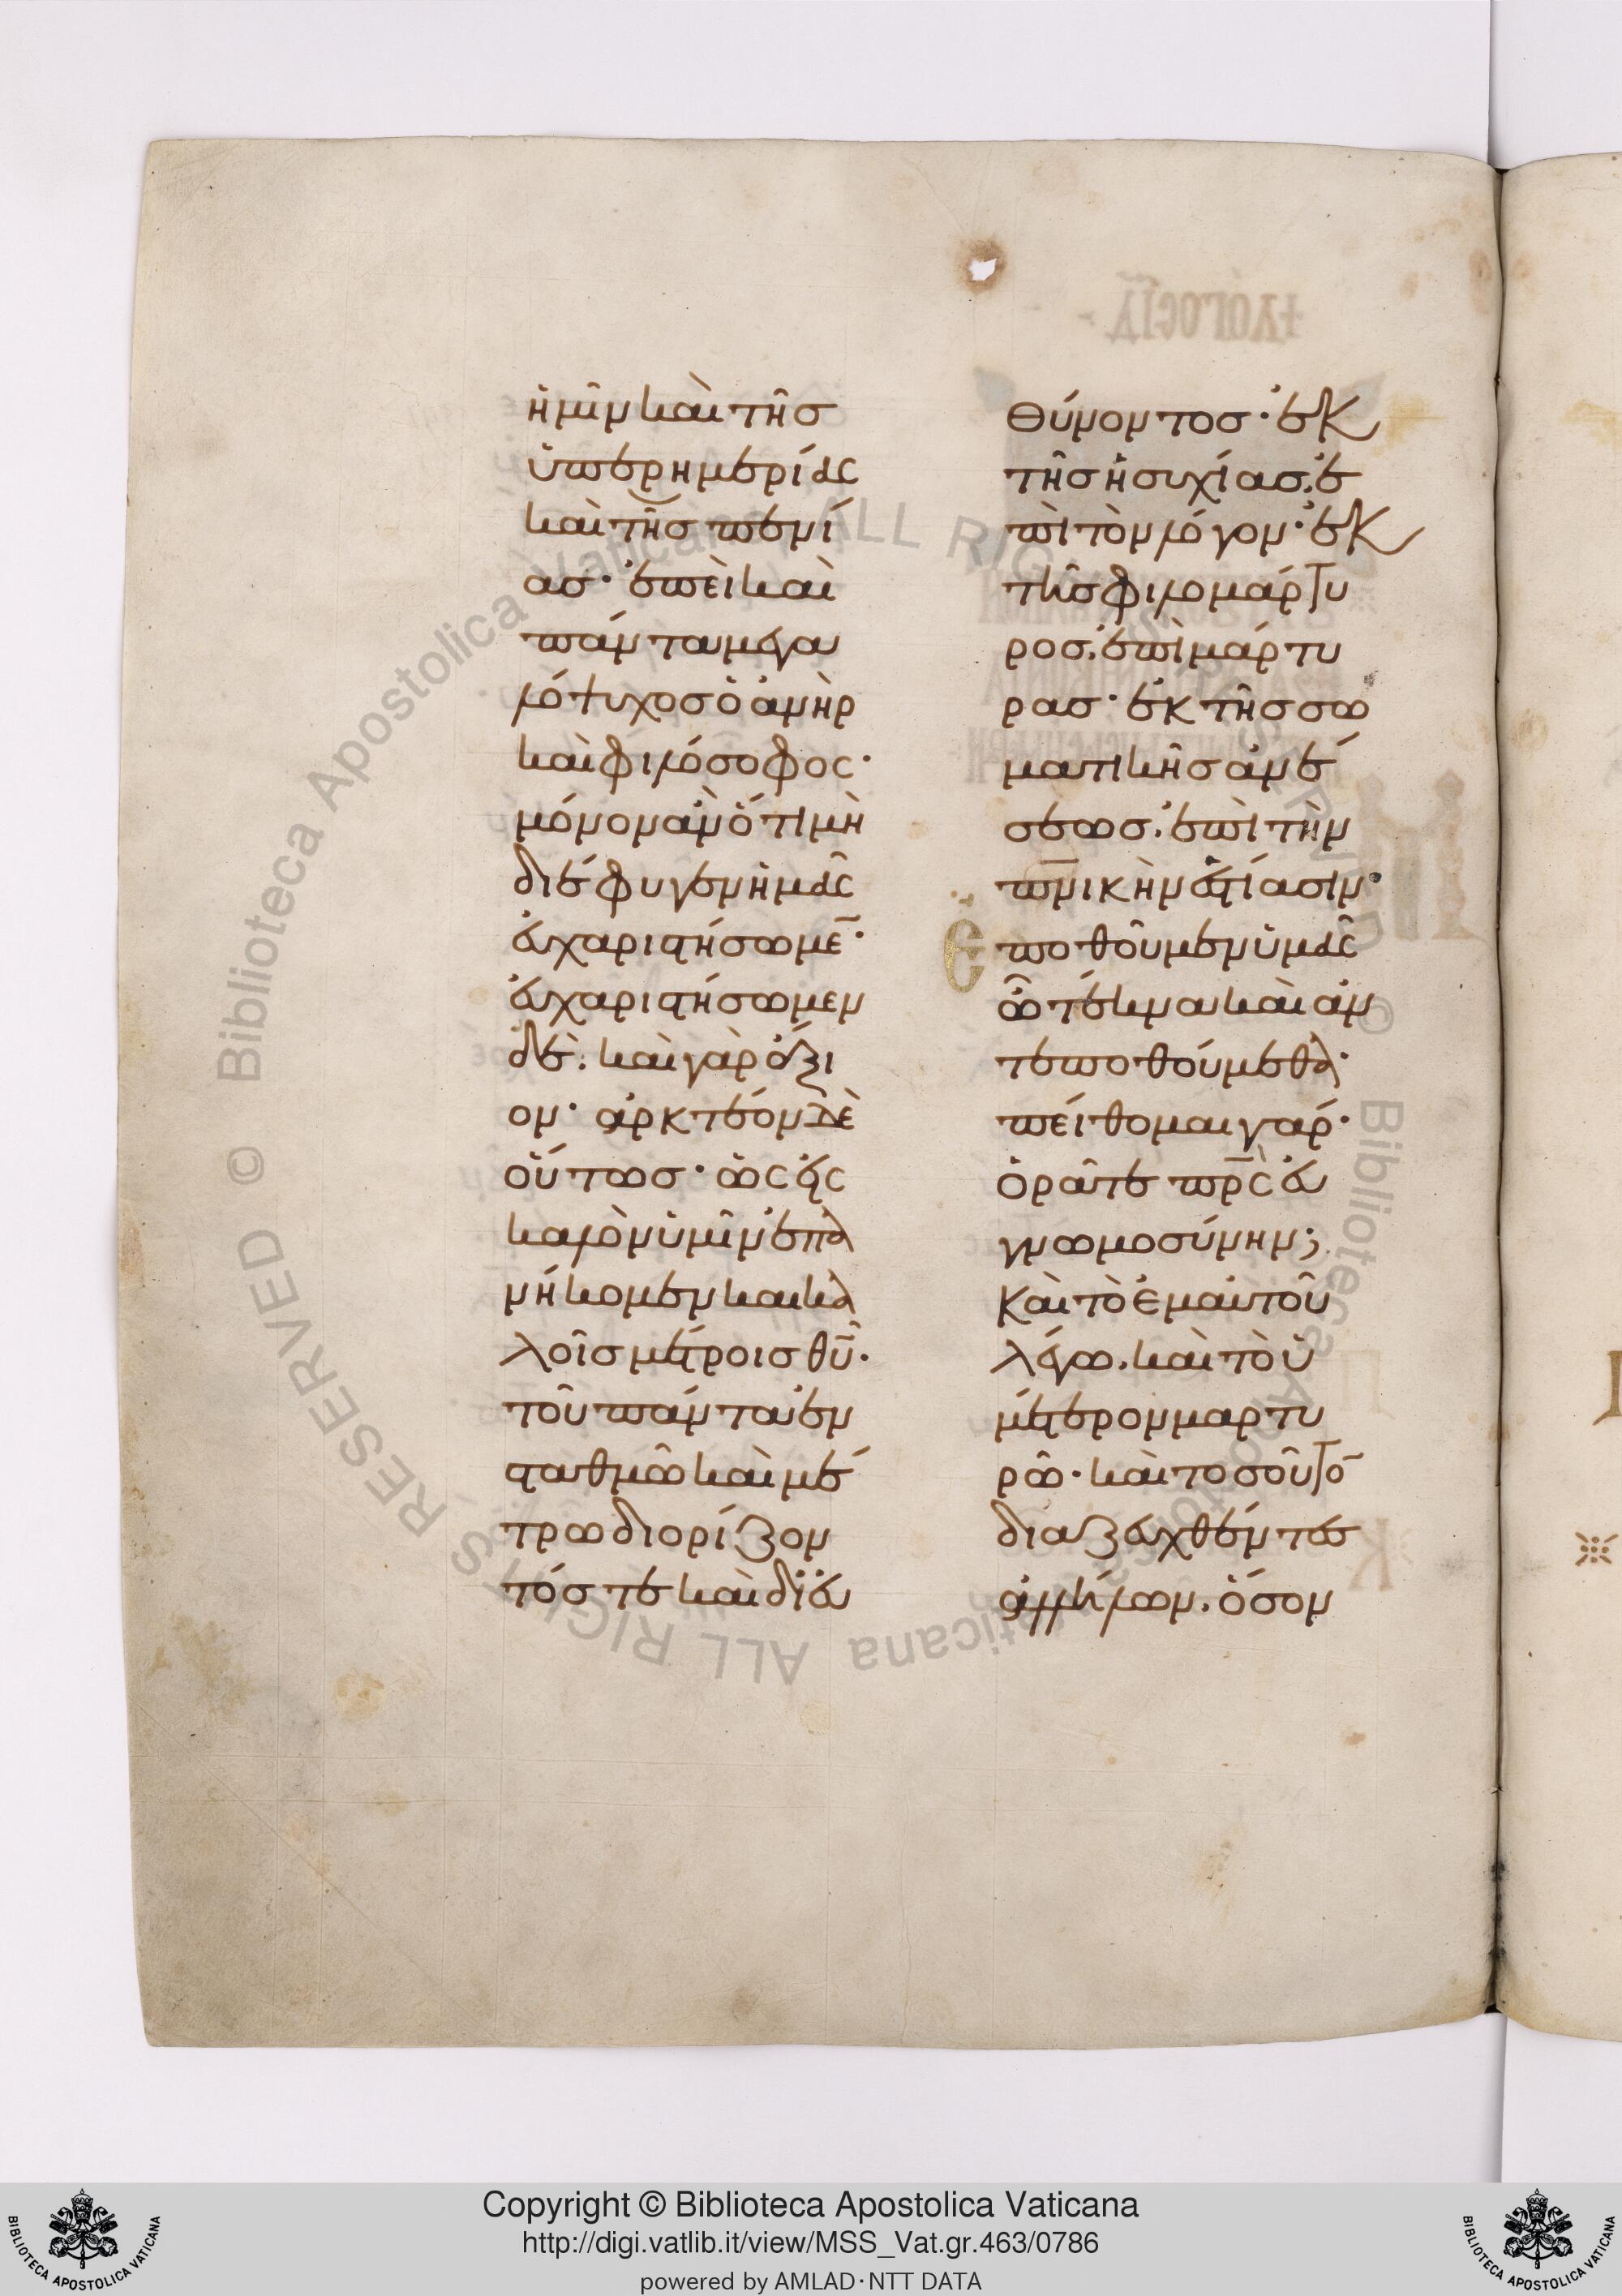 ἡμῖν καὶ τῆσ
ὑπερημερίας
καὶ τῆσ πενί
ασ· ἐπεὶ καὶ
πάντα μεγα
λόψυχοσ ὁ ἀνὴρ
καὶ φιλόσοφος·
μόνον ἀν ὅτι μὴ
διέφυγεν ἡμᾶς
εὐχαριστήσωμε̅·
εὐχαριστήσωμεν
δὲ· καὶ γὰρ ἄξι
ον· ἀρκτέον δὲ
οὕτωσ· ὡς εἰς
καλὸν ὑμῖν ἐπα
νήκομεν καὶ κα
λοῖσ μέτροισ θυ̅·
τοῦ πάντα ἐν
σταθμῶ καὶ μέ
τρω διορίζον
τόσ τε καὶ διευ
θύνοντοσ· ἐκ
τῆσ ἡσυχίασ. ἐ
πὶ τὸν λόγον· ἐκ
τῆσ φιλομάρτυ
ροσ. ἐπὶ μάρτυ
ρασ· ἐκ τῆσ σω
ματικῆσ ἀνέ
σεωσ. ἐπὶ τὴν
πνικὴν ἑστίασιν·
Ἐποθοῦμεν ὑμᾶς
ὦ τέκνα καὶ ἀν
τεποθούμεθα·
πείθομαι γάρ·
ὁρᾶτε πρς̅ εὐ
γνωμοσύνην;
Καὶ τὸ ἐμαυτοῦ
λέγω. καὶ τὸ ὑ
μέτερον μαρτυ
ρῶ· καὶ τοσοῦτο̅
διαζευχθέντεσ
ἀλλήλων. ὅσον
Copyright © Biblioteca Apostolica Vaticana
http://digi.vatlib.it/view/MSS_Vat.gr.463/0786
powered by AMLAD·NTT DATA
BIBLIOTECA APOSTOLICA VATICANA
BIBLIOTECA APOSTOLICA VATICANA
© Biblioteca Apostolica Vaticana ALL RIGHTS RESERVED
© Biblioteca Apostolica Vaticana ALL RIGHTS RESERVED